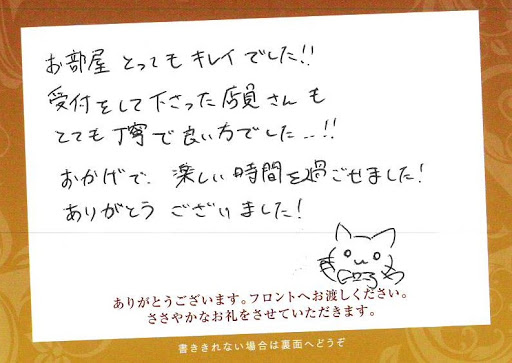 お部屋 とってもキレイでした!!
受付をして下さった店員さんも
とても丁寧で良い方でした…!!
おかげで、楽しい時間を過ごせました!
ありがとう ございました!
ありがとうございます。フロントへお渡しください。
ささやかなお礼をさせていただきます。
書ききれない場合は裏面へどうぞ